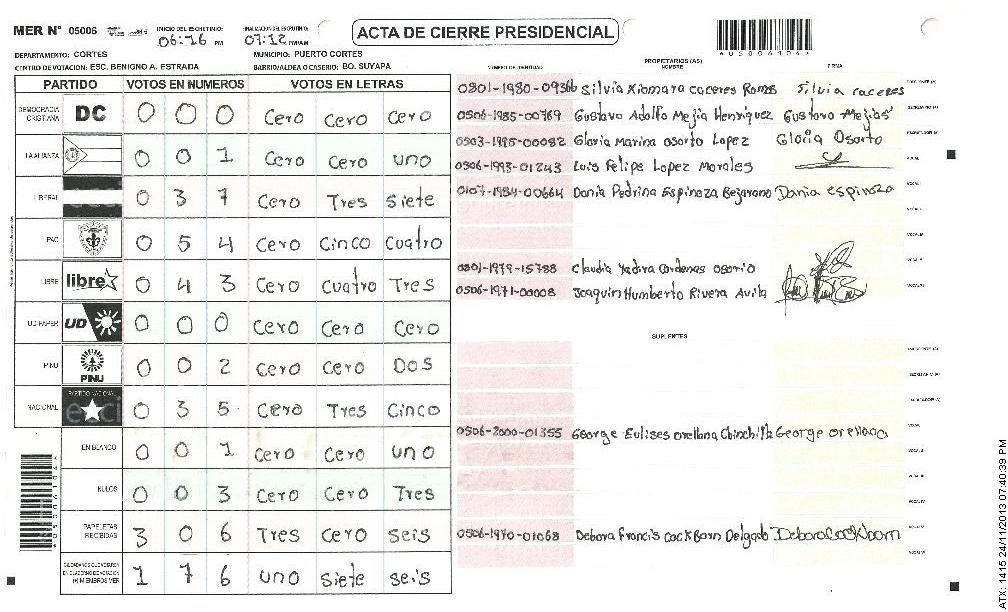 MER N° 05006 INICIO DEL ESCRUTINIO: 06:16 PM FINALIZACION DEL ESCRUTINIO: 07:12 PM/AM
ACTA DE CIERRE PRESIDENCIAL
DEPARTAMENTO: CORTES MUNICIPIO: PUERTO CORTES
CENTRO DE VOTACION: ESC. BENIGNO A. ESTRADA BARRIO/ALDEA O CASERIO: BO. SUYAPA
PARTIDO VOTOS EN NUMEROS VOTOS EN LETRAS
DEMOCRACIA CRISTIANA DC 0 0 0 Cero Cero Cero
LA ALIANZA 0 0 1 Cero Cero uno
LIBERAL 0 3 7 Cero Tres Siete
PAC 0 5 4 Cero Cinco Cuatro
LIBRE libre 0 4 3 Cero Cuatro Tres
UD-FAPER UD 0 0 0 Cero Cero Cero
PINU PINU 0 0 2 Cero Cero Dos
NACIONAL PARTIDO NACIONAL 0 3 5 Cero Tres Cinco
EN BLANCO 0 0 1 Cero Cero uno
NULOS 0 0 3 Cero Cero Tres
PAPELETAS RECIBIDAS 3 0 6 Tres Cero seis
CIUDADANOS QUE VOTARON EN CUADERNO DE VOTACION (+) MIEMBROS MER 1 7 6 uno siete seis
NUMERO DE IDENTIDAD PROPIETARIOS (AS) NOMBRE FIRMA
0801-1980-09366 Silvia Xiomara caceres Ramos Silvia caceres
0506-1985-00769 Gustavo Adolfo Mejia Henriquez Gustavo Mejias
0503-1995-00082 Gloria Marina Osorto Lopez Gloria Osorto
0506-1993-01243 Luis Felipe Lopez Morales
0107-1984-00664 Dania Pedrina Espinoza Bejarano Dania espinoza
0801-1979-15788 Claudia Yadira Cardenas Osorio
0506-1971-00008 Joaquin Humberto Rivera Avila
SUPLENTES
0506-2000-01355 George Eulises orellana Chinchilla George orellana
0506-1970-01068 Debora Francis Cock Born Delgado
ATX: 1415 24/11/2013 07:40:39 PM